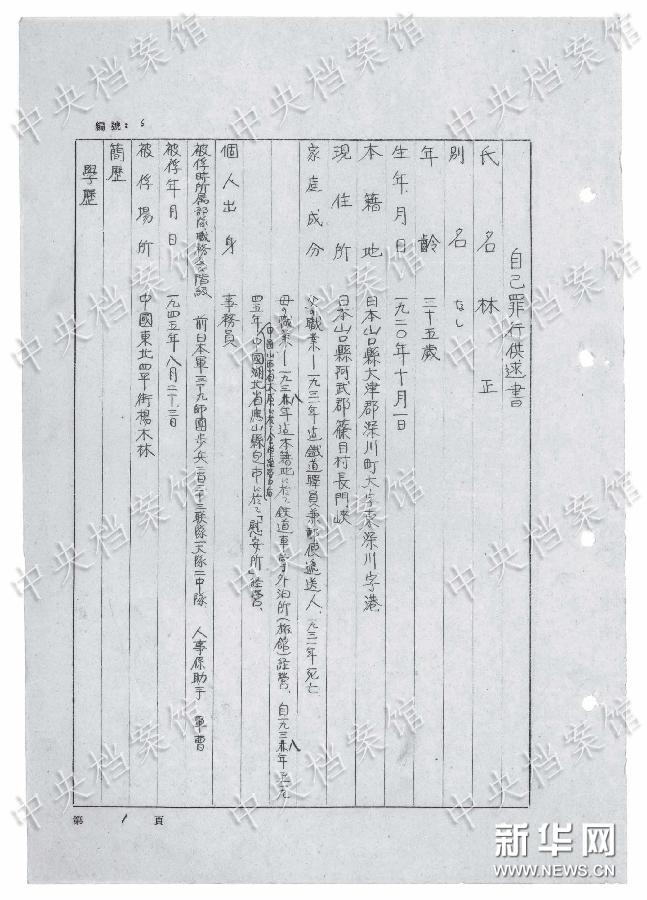 編號：6
自己罪行供述書
氏名 林 正
別名 なし
年齡 三十五歲
生年月日 一九二〇年十月一日
本籍地 日本山口縣大津郡深川町大字東深川字港
現住所 日本山口縣阿武郡篠目村長門峽
家庭成分 父の職業—一九三一年迄鐵道職員兼郵便遞送人、一九三一年死亡
母の職業—一九三八年迄本籍地に於て鉄道乗務外泊所(旅館)経営、自一九三八年至一九
四五年 中國湖北省應山縣 に於て「慰安所」経営、
個人出身 事務員
被俘時所属部隊職務及階級 前日本軍三十九師團歩兵二百三十三联隊一大隊二中隊 人事係助手 軍曹
被俘年月日 一九四五年八月二十三日
被俘場所 中國東北四平街楊木林
簡歷
學歷
第 1 頁
中央档案馆
新华网
WWW.NEWS.CN